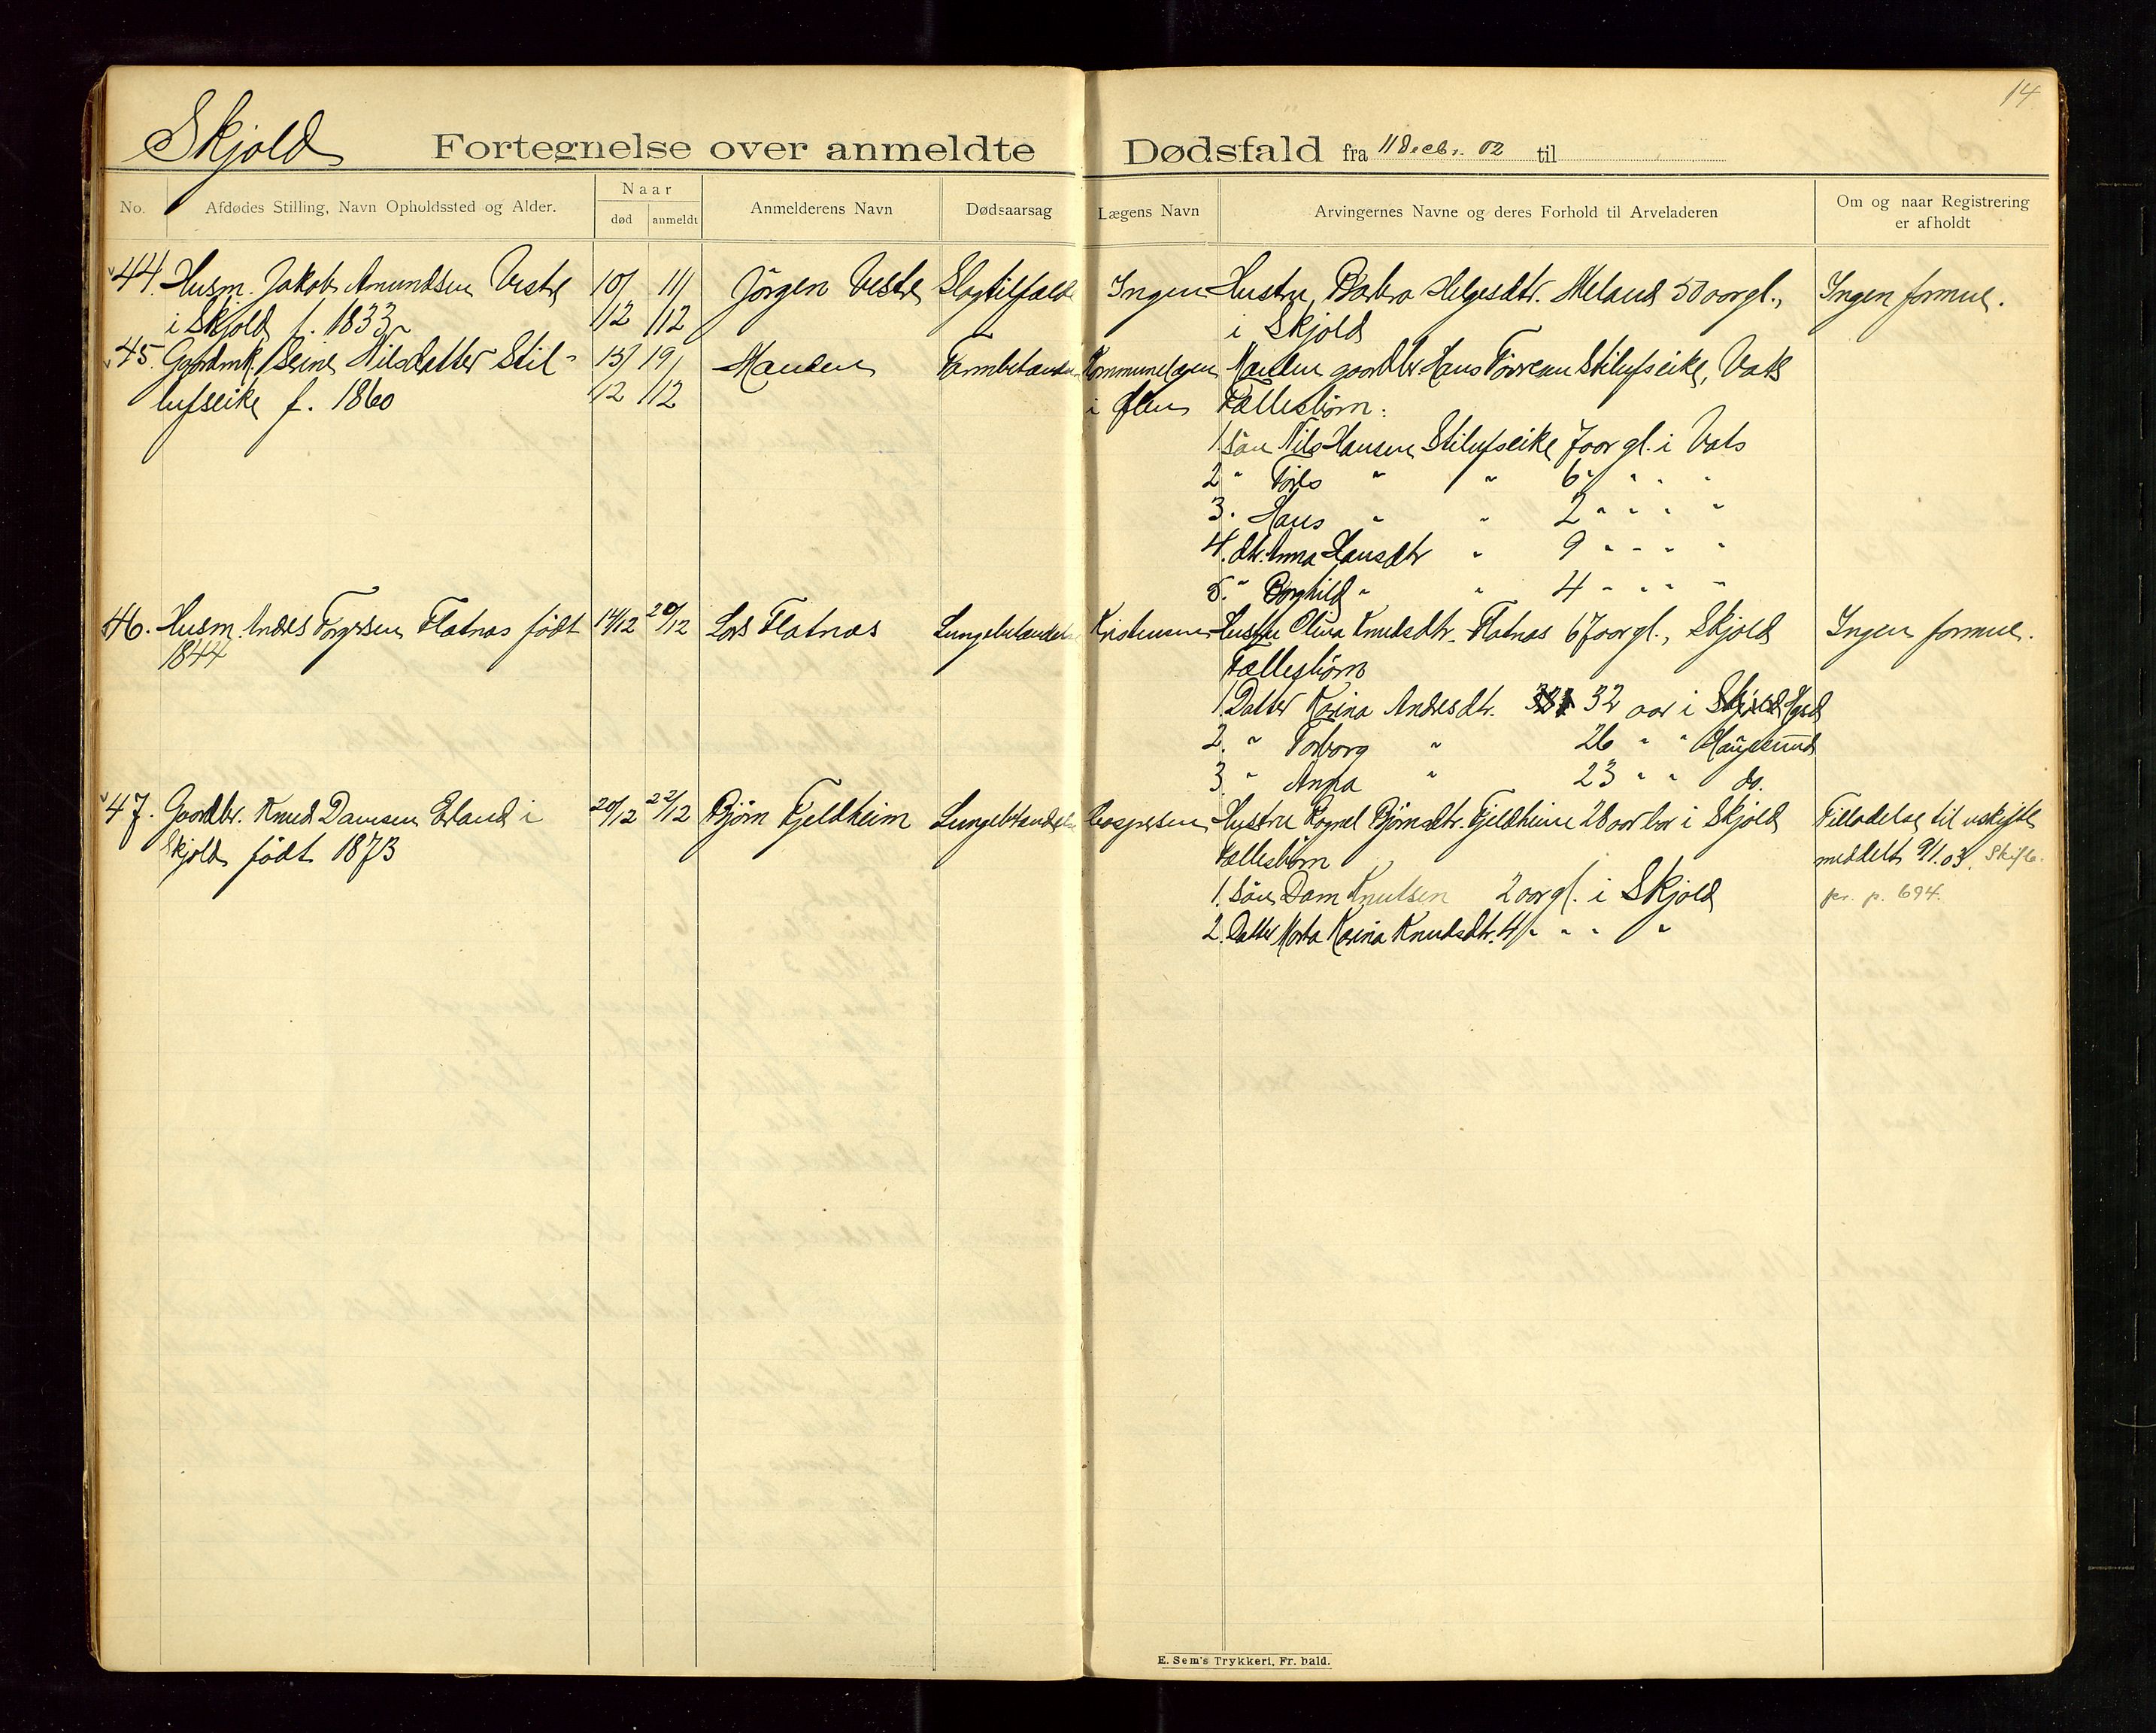 14
Skjold
Fortegnelse over anmeldte Dødsfald fra 11 Decbr. 02 til
No. Afdødes Stilling, Navn Opholdssted og Alder. Naar død anmeldt Anmelderens Navn Dødsaarsag Lægens Navn Arvingernes Navne og deres Forhold til Arveladeren Om og naar Registrering er afholdt
44. Husm. Jakob Amundsen Vestre 10/12 11/12 Jörgen Vestre Slagtilfælde Ingen Hustru, Barbra Helgesdtr. Meland 50 aar gl., Ingen formue.
i Skjold f. 1833 i Skjold
45. Gaardmk. Serine Nilsdatter Stil- 15/12 19/12 Manden Tarmbetændelse Kommunelægen Manden gaardbr Hans Stilufseike, Vats
lufseike f. 1860 i Ølen Fællesbörn:
1. Sön Nils Hansen Stilufseike 7 aar gl. i Vats
2 " " " 6 " " "
3. Hans " " 2 " " " "
4. dtr. Anna Hansdtr " 9 " " " "
5. " Borghild " " 4 " " " "
46. Husm. Andreas Torgersen Flatnæs född 14/12 20/12 Lars Flatnæs Lungebetændelse Kristensen Hustru Olina Knudsdtr. Flatnæs 67 aar gl., Skjold Ingen formue.
1844 Fællesbörn
1. Datter Karina Andreasdtr. 32 aar i Skjold Hgsd
2. " Torborg " 26 " " Haugesund
3 " Anna " 23 " " do.
47. Gaardbr. Knud Damsen Erland i 20/12 22/12 Bjørn Fjeldheim Lungebetændelse Caspersen Hustru Ragnel Bjørnsdtr. Fjeldheim 28 aar bor i Skjold Tilladelse til uskifte
Skjold födt 1873 Fællesbörn meddelt 9/1.03. Skifte-
1. Sön Dam Knutsen 2 aar gl. i Skjold pr. p. 694.
2. Datter Marta Karina Knudsdtr. 4 " " " "
E. Sem's Trykkeri, Fr. hald.